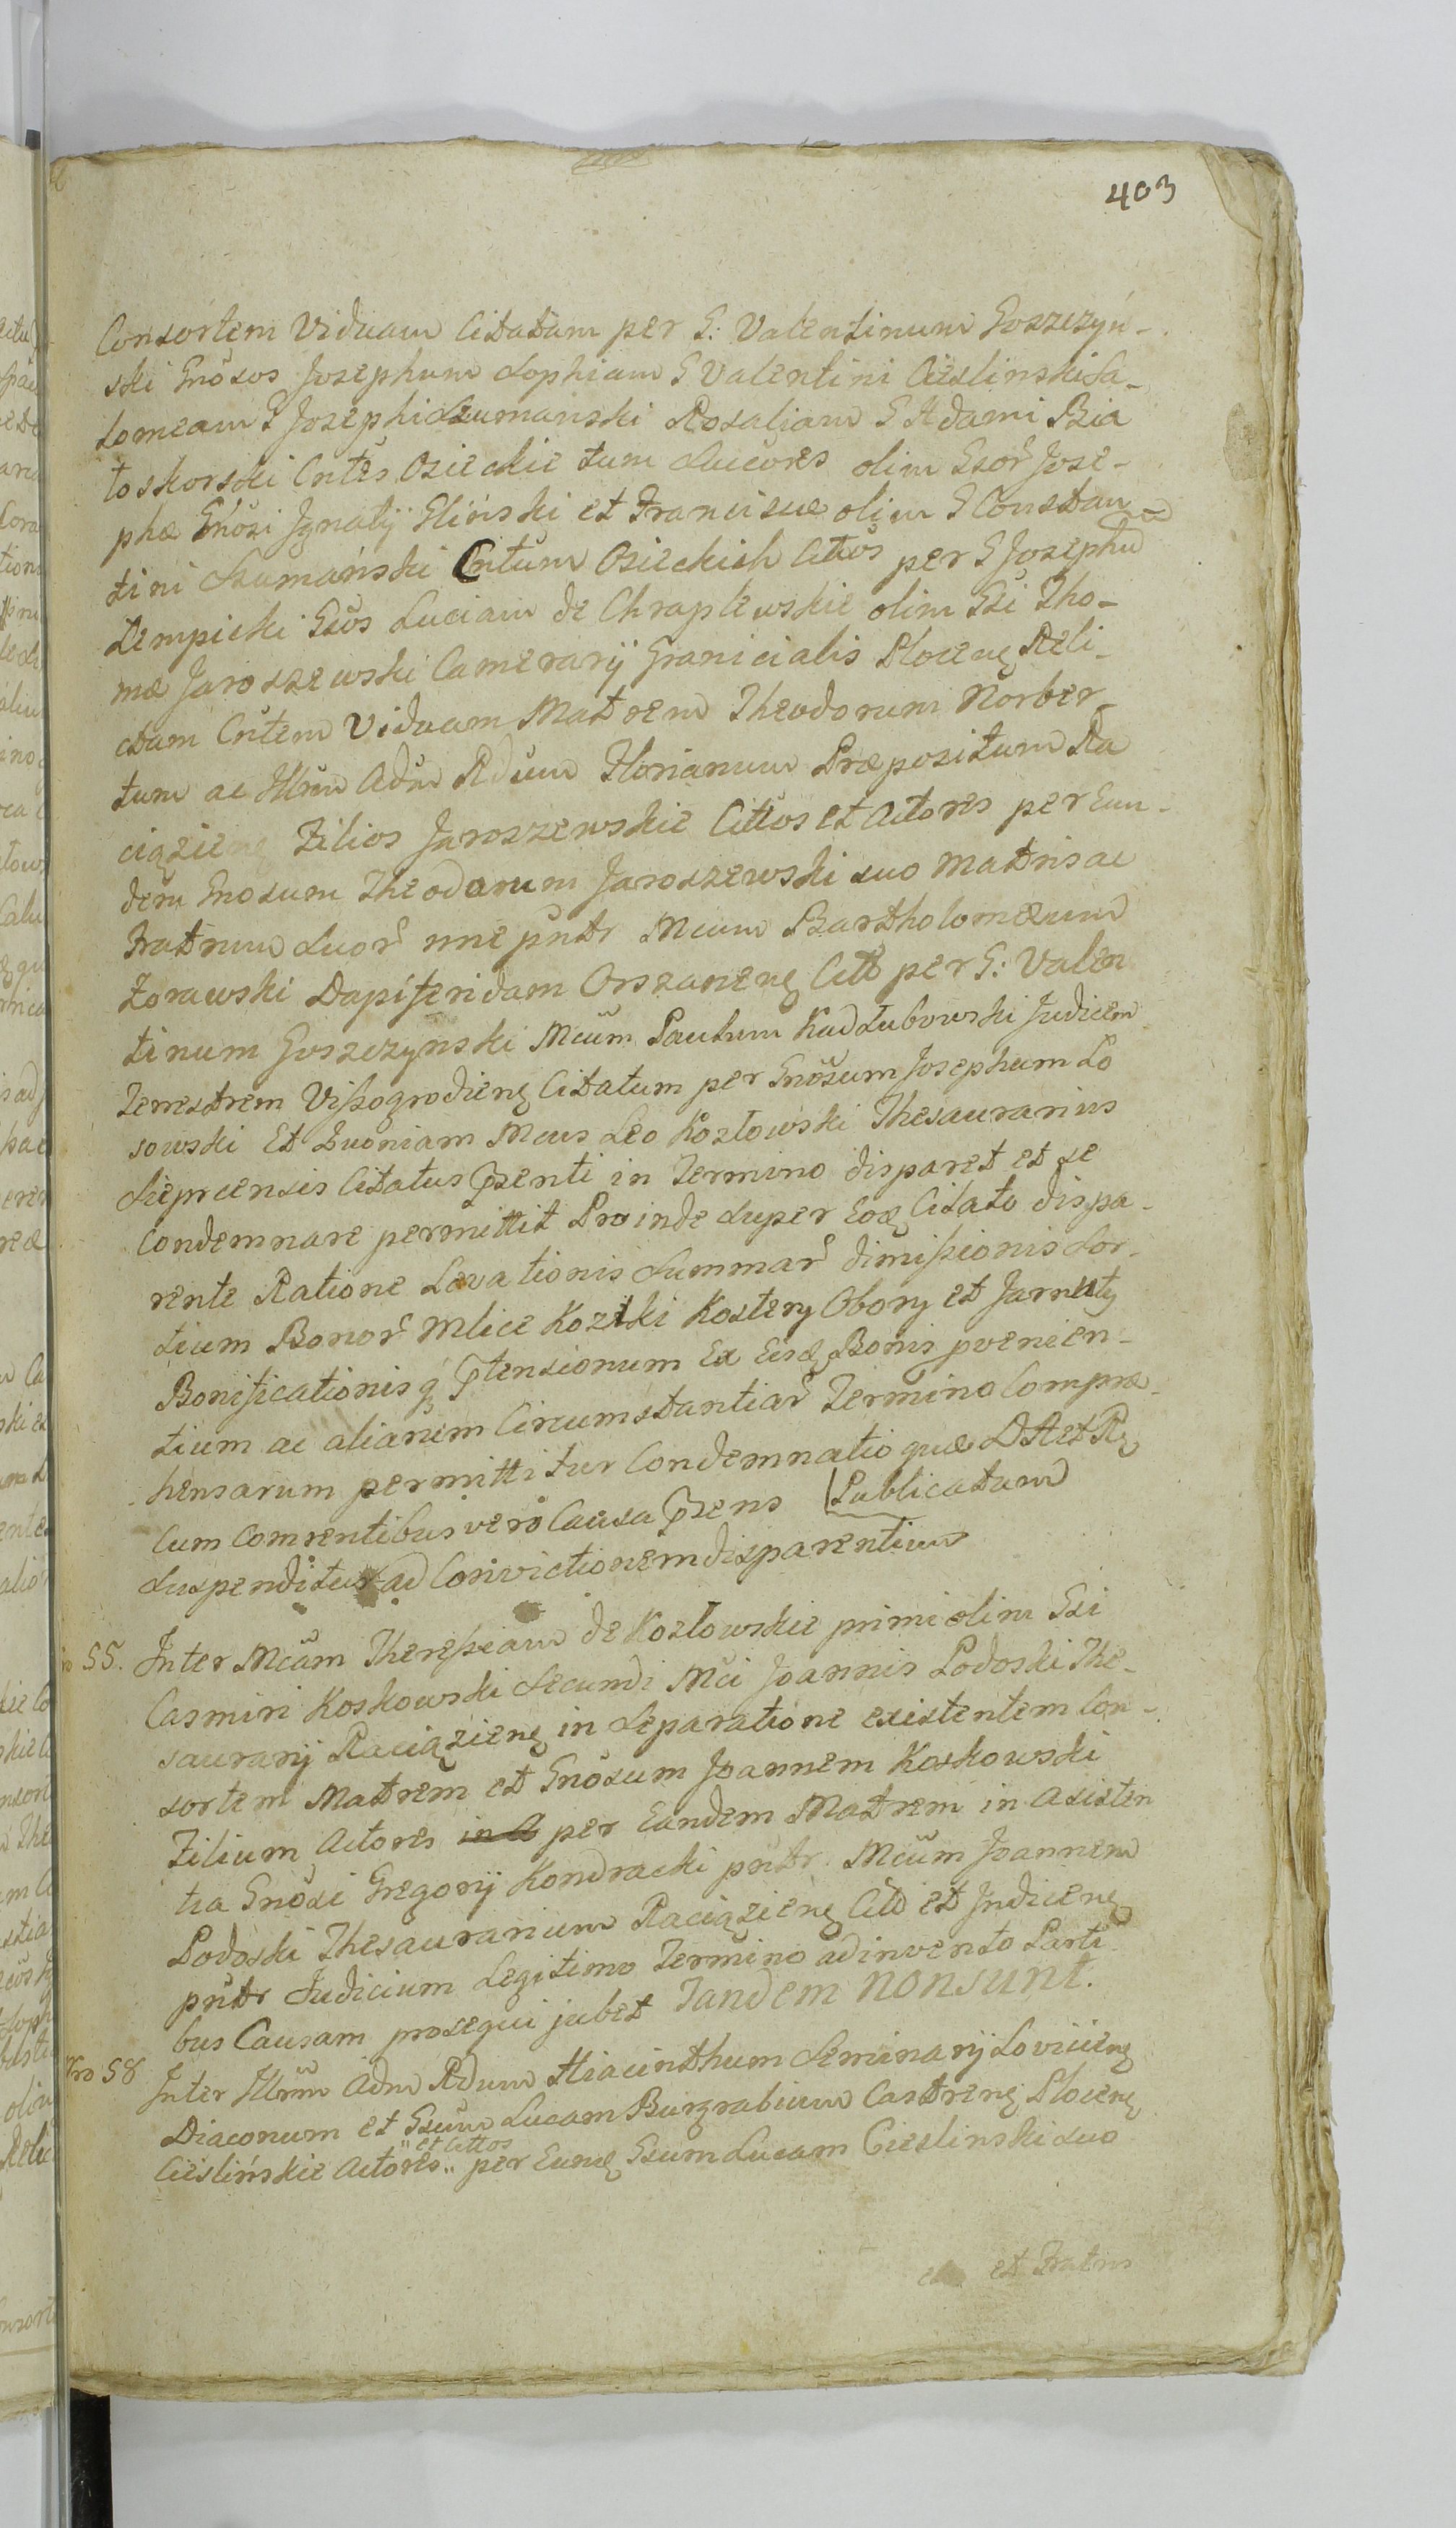 403
Consortem Viduam Citatam per G: Valentinum Goszczyń-
ski Gnősos Josephum Sophiam G Valentini Cieslinski Sa-
lomeam G Josephi Szumanski Rosaliam G Adami Bia
łoskorski Cntes Osieckie tum Succores olim Gsor̃ Jose-
phæ Gnősi Jgnatij Gliński et Franciscæ olim G Constan-
tini Szumański Cntum Osieckich Cittős per G Josephũ
Lempicki Gsős Luciam de Chraplewskie olim Gsi Tho-
mæ Jaroszewski Camerarij Granicialis Plocenȩ Reli-
ctam Cñtem Viduam Matrem Theodorum Norber-
tum ac Jllrem Adm̃ Rdum Florianum Præpositum Ra
ciązienȩ Filios Jaroszewskie Cittos et Actores per Eun-
dem Gnosum Theodorum Jaroszewski suo Matris ac
Fratrum Suor̃ nne pntr Mcum Bartholomæum
Zorawski Dapiferidam Orszanenȩ Citt per G: Valen
tinum Goszczynski Mcum Paulum Kadłubowski Judicem
Terrestrem Vißogrodienȩ Citatum per Gnősum Josephum Ło
sowski Et Quoniam Mcus Leo Kozłowski Thesaurarius
Sieprcensis Citatus P̃senti in Termino disparet et se
Condemnare permittit Proinde super Eoȩ Citato dispa-
rente Ratione Levationis Summar̃ dimißionis Sor-
tium Bonor̃ Mlice Koztki Kostery Obory et Jarnuty
Bonificationis q́ȩ P̃tensionum Ex Eisȩ Bonis pvenien-
tium ac aliarum Circumstantiar̃ Termino Compræ-
hensarum permittitur Condemnatio quæ DA et Rȩ
Cum Comrentibus vero Causa P̃sens Publicatum
Suspenditur ad Convictionem disparentium
55. Jnter Mcam Thereßiam de Kozłowskie primi olim Gsi
Casmiri Koskowski Secundi Mci Joannis Podoski The-
saurarij Raciązienȩ in Separatione existentem Con-
sortem Matrem et Gnősum Joannem Koskowski
Filium Actores in A per Eandem Matrem in Asisten
tia Gnősi Gregorij Kondracki pntr. Mcum Joannem
Podoski Thesaurarium Raciązienȩ Citt et Judicenȩ
pntr Judicium Legitimo Termino adinvento Parti
bus Causam prosequi jubet Tandem non sunt.
Nro 58 Jnter Jllrem Adm Rdum Hiacinthum Seminarij Lovicienȩ
Diaconum et Gsum Lucam Burgrabium Castrenȩ Plocenȩ
" et Cittos
Cieślińskie Actores " per Eunȩ Gsum Lucam Cieslinski suo
et Fratris